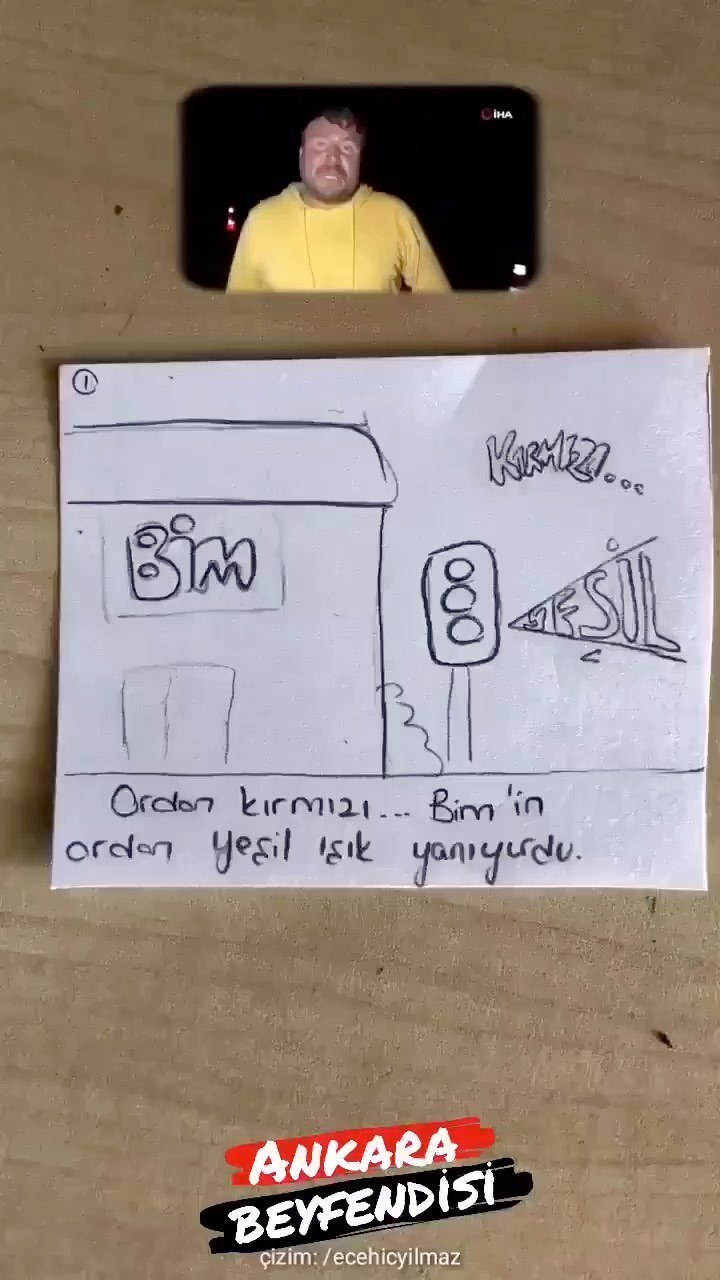 iHA
1
KIRMIZI...
BİM
YEŞİL
Ordan kırmızı... Bim'in
ordan yeşil ışık yanıyurdu.
ANKARA
BEYFENDİSİ
çizim: /ecehicyilmaz